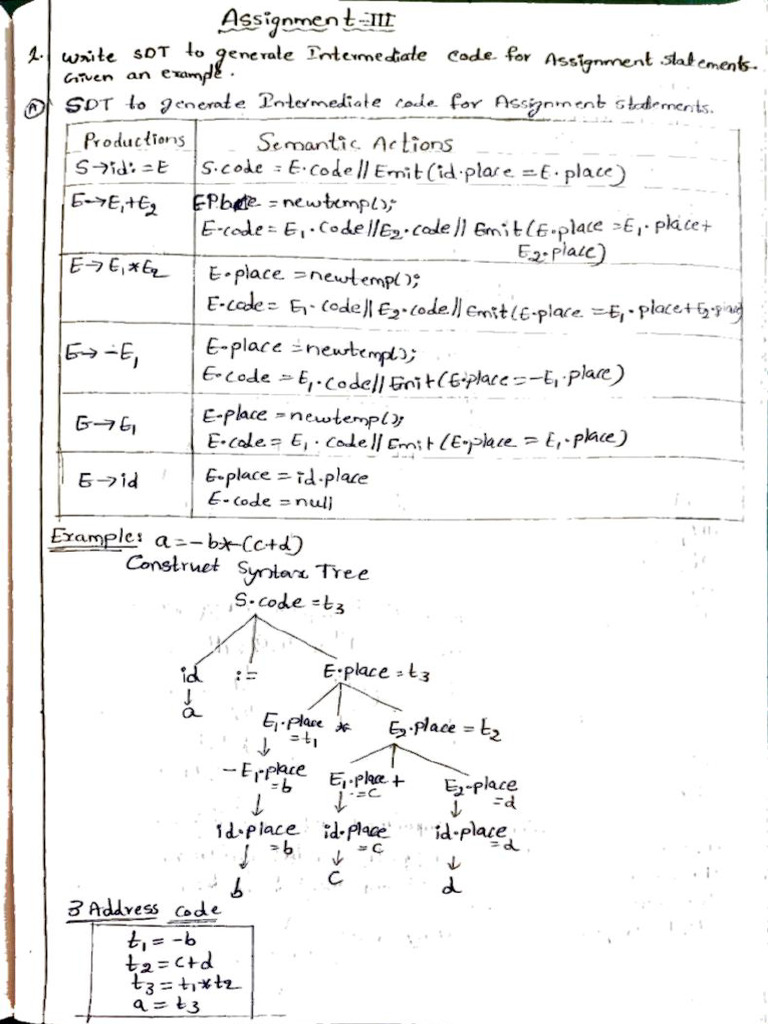 Assignment-III
1. write SDT to generate Intermediate code for Assignment statements.
Given an example.
(A) SDT to generate Intermediate code for Assignment statements.
Productions Semantic Actions
S→id:=E S.code = E.code || Emit(id.place = E.place)
E→E₁+E₂ E.place = newtemp();
E.code = E₁.code || E₂.code || Emit(E.place = E₁.place +
E₂.place)
E→E₁*E₂ E.place = newtemp();
E.code = E₁.code || E₂.code || Emit(E.place = E₁.place + E₂.place)
E→-E₁ E.place = newtemp();
E.code = E₁.code || Emit(E.place = -E₁.place)
E→E₁ E.place = newtemp();
E.code = E₁.code || Emit(E.place = E₁.place)
E→id E.place = id.place
E.code = null
Example: a=-b*(c+d)
Construct Syntax Tree
S.code = t₃
id := E.place = t₃
↓
a
E₁.place * E₂.place = t₂
= t₁
↓
-E₁.place E₁.place + E₂.place
=b =c =d
↓ ↓ ↓
id.place id.place id.place
=b =c =d
↓ ↓ ↓
b c d
3 Address code
t₁ = -b
t₂ = c+d
t₃ = t₁*t₂
a = t₃